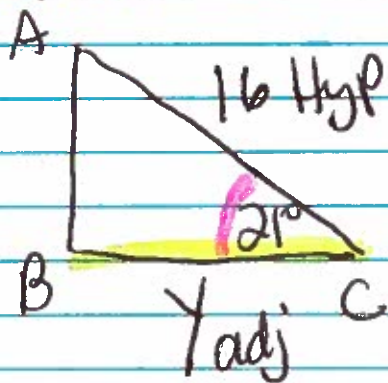 A
16 Hyp
21°
B
C
Y adj